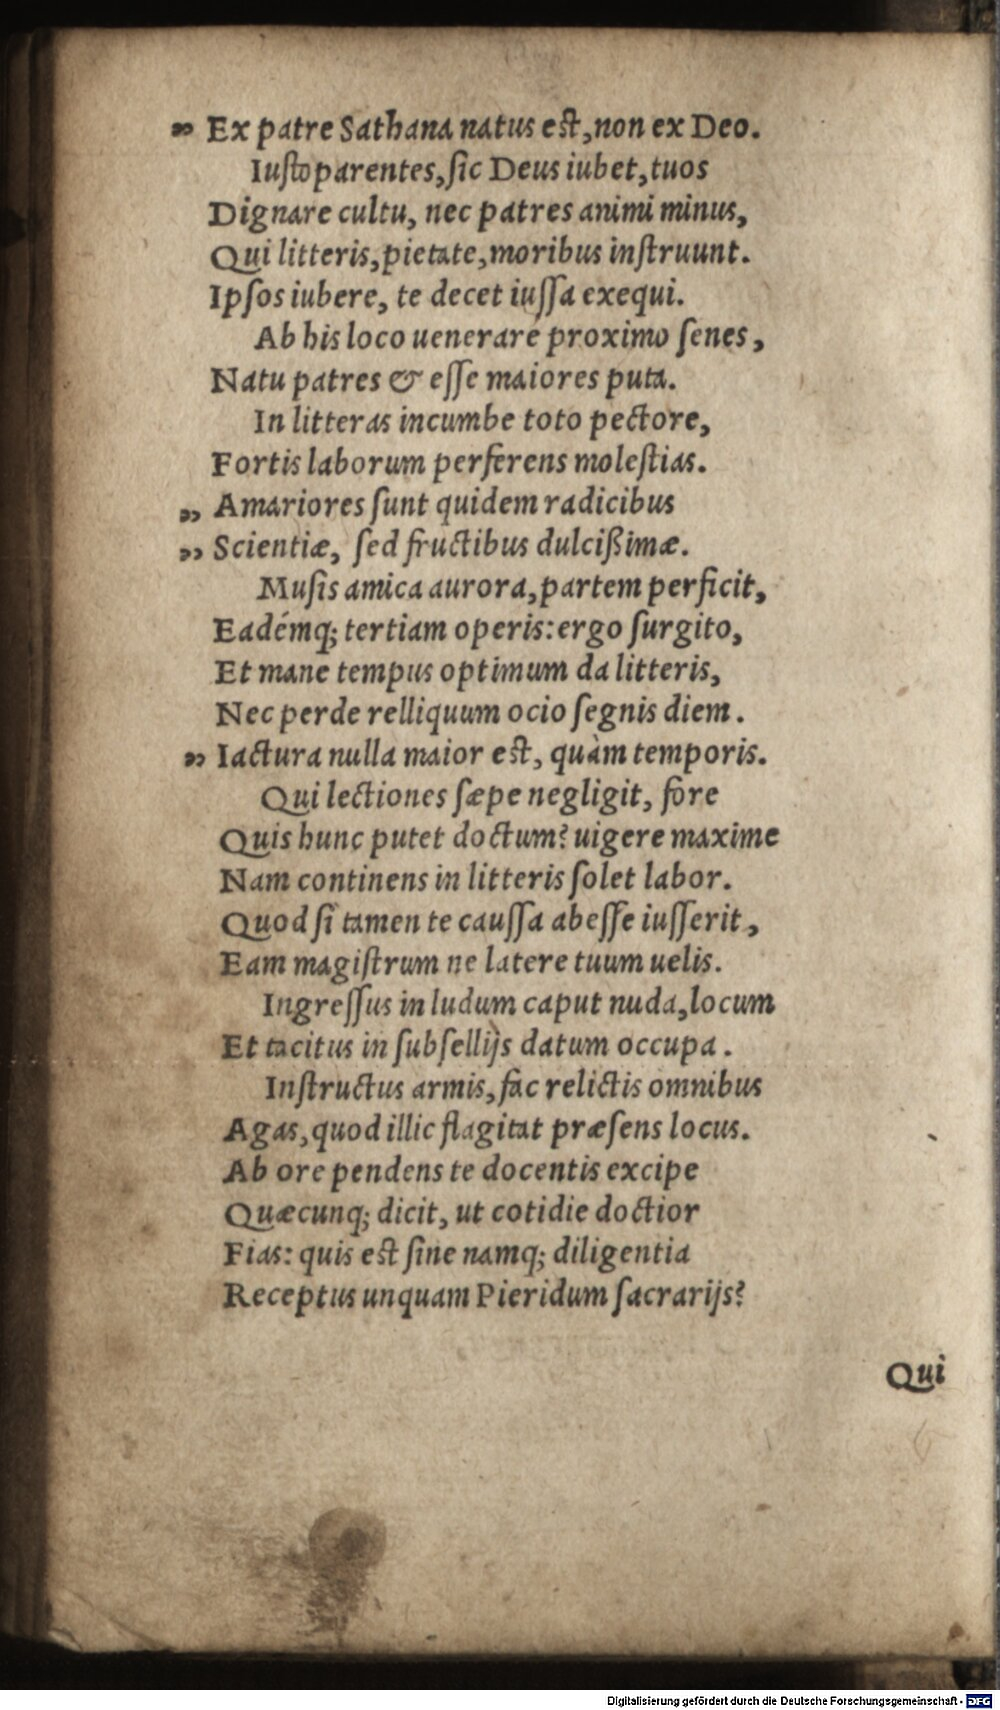 „ Ex patre Sathana natus est, non ex Deo.
Iusto parentes, sic Deus iubet, tuos
Dignare cultu, nec patres animi minus,
Qui litteris, pietate, moribus instruunt.
Ipsos iubere, te decet iussa exequi.
Ab his loco uenerare proximo senes,
Natu patres & esse maiores puta.
In litteras incumbe toto pectore,
Fortis laborum perferens molestias.
„ Amariores sunt quidem radicibus
„ Scientiæ, sed fructibus dulcißimæ.
Musis amica aurora, partem perficit,
Eadémq; tertiam operis: ergo surgito,
Et mane tempus optimum da litteris,
Nec perde relliquum ocio segnis diem.
„ Iactura nulla maior est, quàm temporis.
Qui lectiones sæpe negligit, fore
Quis hunc putet doctum? uigere maxime
Nam continens in litteris solet labor.
Quod si tamen te caussa abesse iusserit,
Eam magistrum ne latere tuum uelis.
Ingressus in ludum caput nuda, locum
Et tacitus in subsellijs datum occupa.
Instructus armis, fac relictis omnibus
Agas, quod illic flagitat præsens locus.
Ab ore pendens te docentis excipe
Quæcunq; dicit, ut cotidie doctior
Fias: quis est sine namq; diligentia
Receptus unquam Pieridum sacrarijs?
Qui
Digitalisierung gefördert durch die Deutsche Forschungsgemeinschaft - DFG